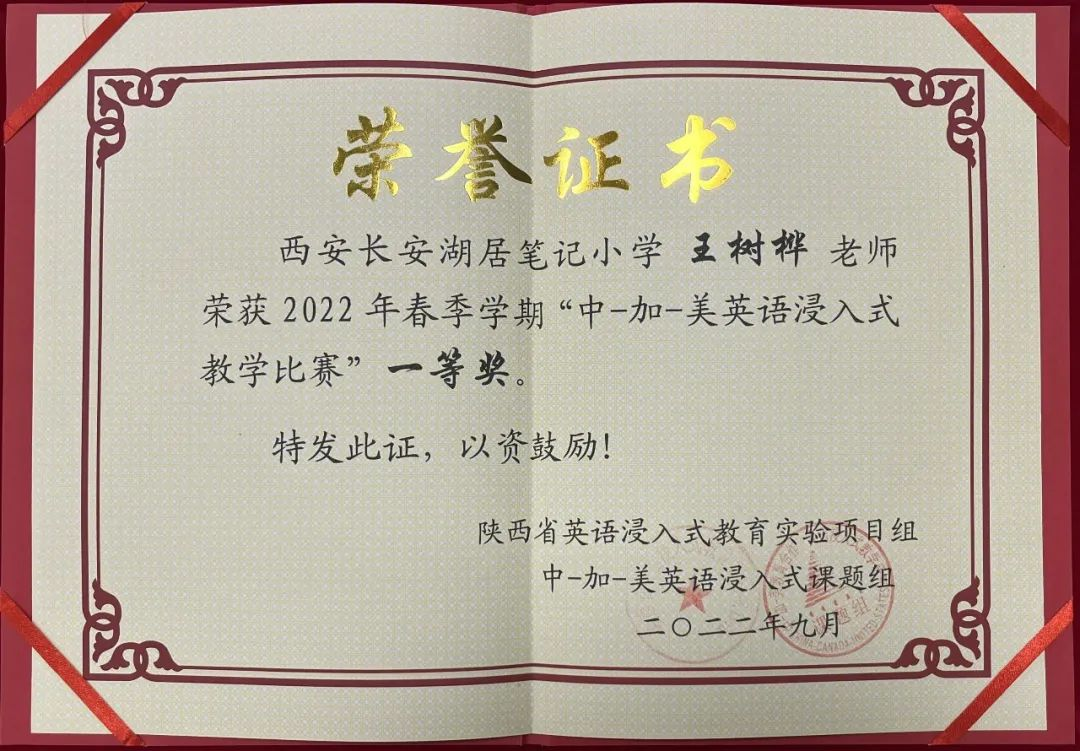 荣誉证书
西安长安湖居笔记小学 王树桦 老师
荣获 2022 年春季学期“中-加-美英语浸入式
教学比赛” 一等奖。
特发此证，以资鼓励！
陕西省英语浸入式教育实验项目组
中-加-美英语浸入式课题组
二〇二二年九月
课题组
CHINA-CANADA-UNITED STATES